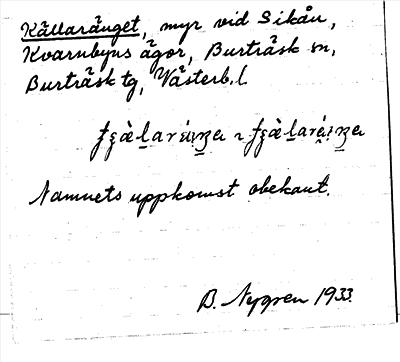 Källaränget, myr vid Sikån,
Kvarnbyns ägor, Burträsk sn,
Burträsk tg, Västerb. l.
Namnets uppkomst obekant.
B. Nygren 1933.